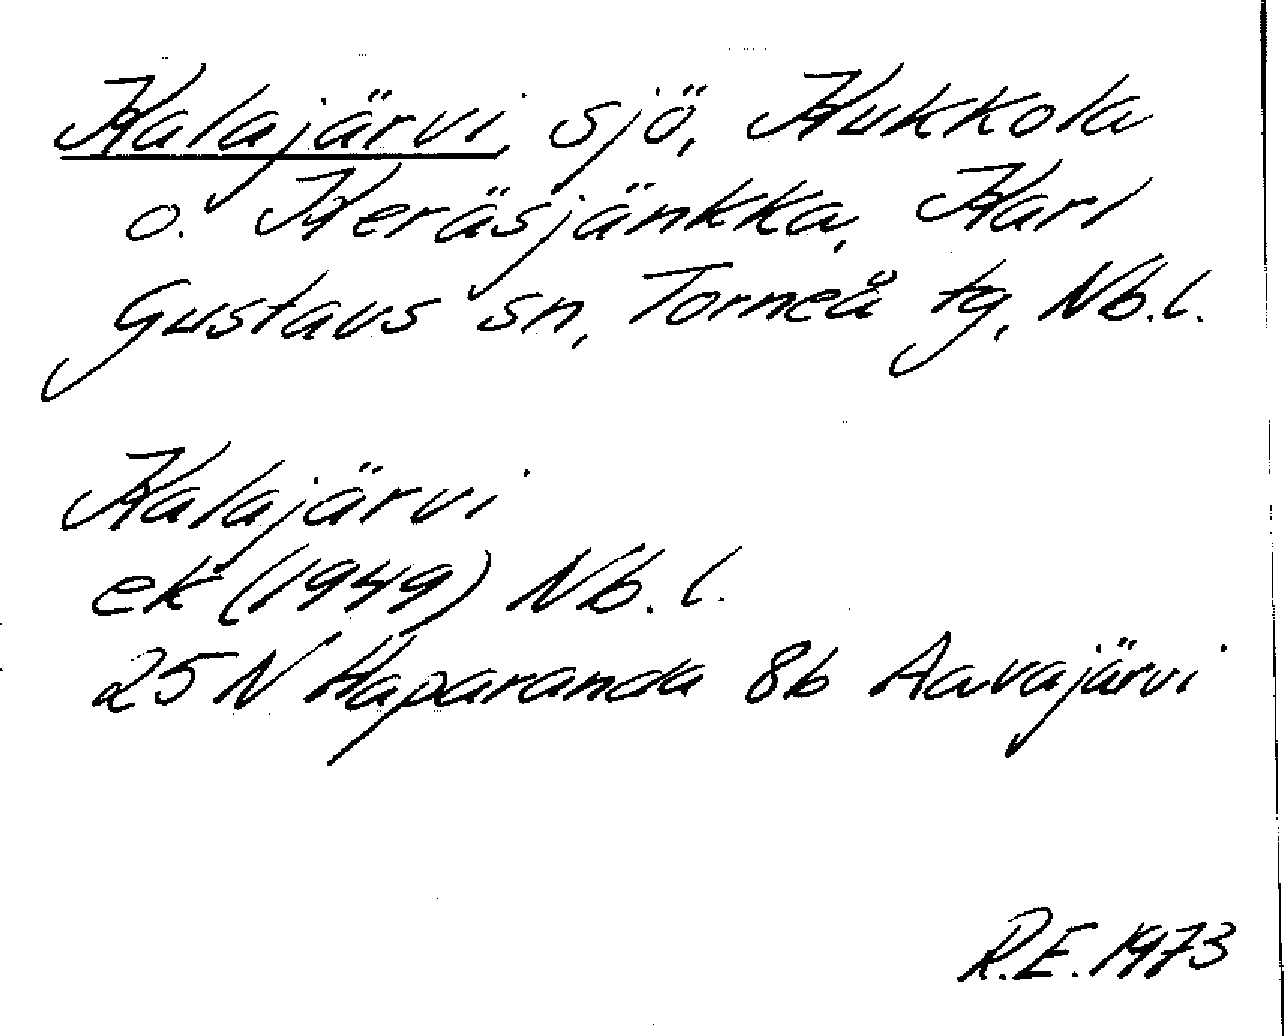 Kalajärvi, sjö, Kukkola
o. Keräsjänkkä, Karl
Gustavs sn, Torneå tg, Nb.l.
Kalajärvi
ek (1949) Nb.l.
25 N Haparanda 8b Aavajärvi
R.E. 1973